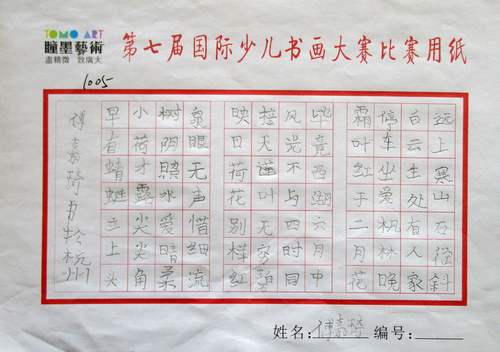 TOMO ART
瞳墨藝術
盡精微 致廣大
第七届国际少儿书画大赛比赛用纸
1005
远上寒山石径斜
白云生处有人家
停车坐爱枫林晚
霜叶红于二月花
毕竟西湖六月中
风光不与四时同
接天莲叶无穷碧
映日荷花别样红
泉眼无声惜细流
树阴照水爱晴柔
小荷才露尖尖角
早有蜻蜓立上头
傅嘉琦书於杭州
姓名：傅嘉琦 编号：